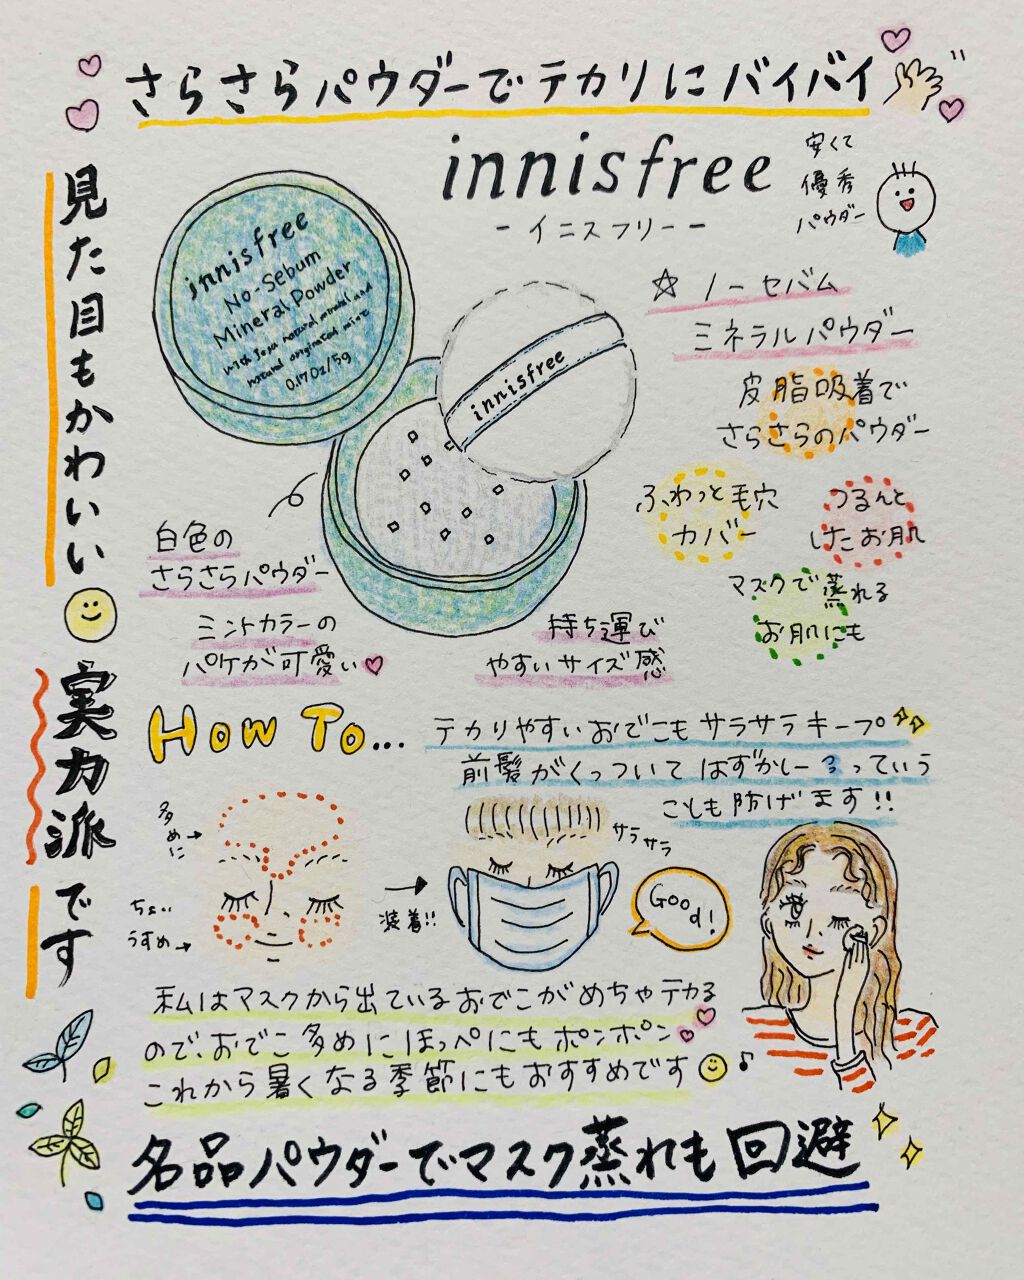 さらさらパウダーでテカリにバイバイ
見た目もかわいい
実力派です
innisfree
-イニスフリー-
安くて
優秀
パウダー
innisfree
No-Sebum
Mineral Powder
with Jeju natural mineral and
natural originated mint
0.17Oz/5g
innisfree
☆ノーセバム
ミネラルパウダー
皮脂吸着で
さらさらのパウダー
ふわっと毛穴
カバー
つるんと
したお肌
マスクで蒸れる
お肌にも
白色の
さらさらパウダー
ミントカラーの
パケが可愛い♡
持ち運び
やすいサイズ感
HOW TO...
テカりやすいおでこもサラサラキープ
前髪がくっついてはずかしーるっていう
ことも防げます!!
多めに→
ちょい
うすめ→
装着!!
サラサラ
Good!
私はマスクから出ているおでこがめちゃテカる
ので、おでこ多めにほっぺにもポンポン♡
これから暑くなる季節にもおすすめです
♪
名品パウダーでマスク蒸れも回避